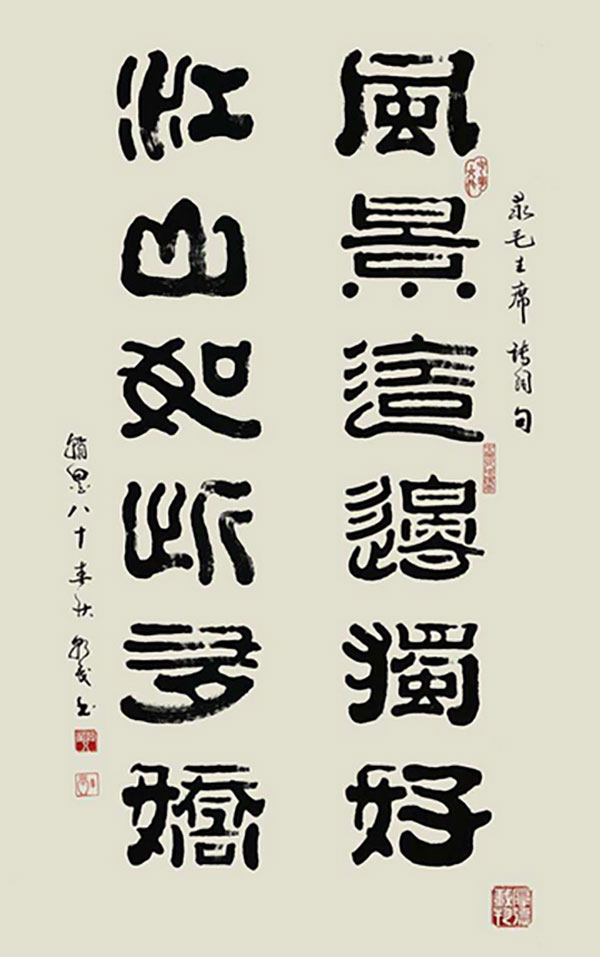 录毛主席诗词句
風景這邊獨好
江山如此多嬌
翰墨八十春秋